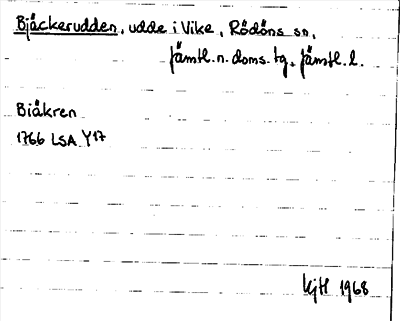 Bjäckerudden, udde i Vike, Rödöns sn,
Jämtl. n. doms. tg. Jämtl. l.
Biåkren
1766 LSA Y17
KjH 1968